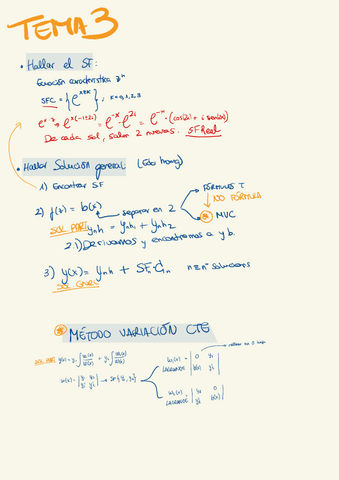 TEMA 3
• Hallar el SF:
Ecuación característica zⁿ
SFC = { e^{xzk} }, k=0,1,2,3
e^{xz} → e^{x(-1±2i)} = e^{-x} · e^{2i} = e^{-x} (cos(2x) + i sen(2x))
De cada sol, salen 2 nuevas. SF Real
• Hallar Solución general (Edo homog)
1) Encontrar SF
2) f(z) = b(x)
separar en 2
FORMULAS T
NO FÓRMULA
* MVC
SOL PART y_nh = y_nh1 + y_nh2
2.1) Derivamos y encontramos a y b.
3) y(x) = y_nh + SF · C_n n≡nº soluciones
SOL GNRL
* MÉTODO VARIACIÓN CTE
SOL PART y(x) = y_1 ∫ w_1(x)/w(x) + y_2 ∫ w_2(x)/w(x)
w(x) = | y_1 y_2 y_1' y_2' | → SF {y_1, y_2}
w_1(x) = | 0 y_2 b(x) y_2' |
LAGRANGE
w_2(x) = | y_1 0 y_1' b(x) |
LAGRANGE